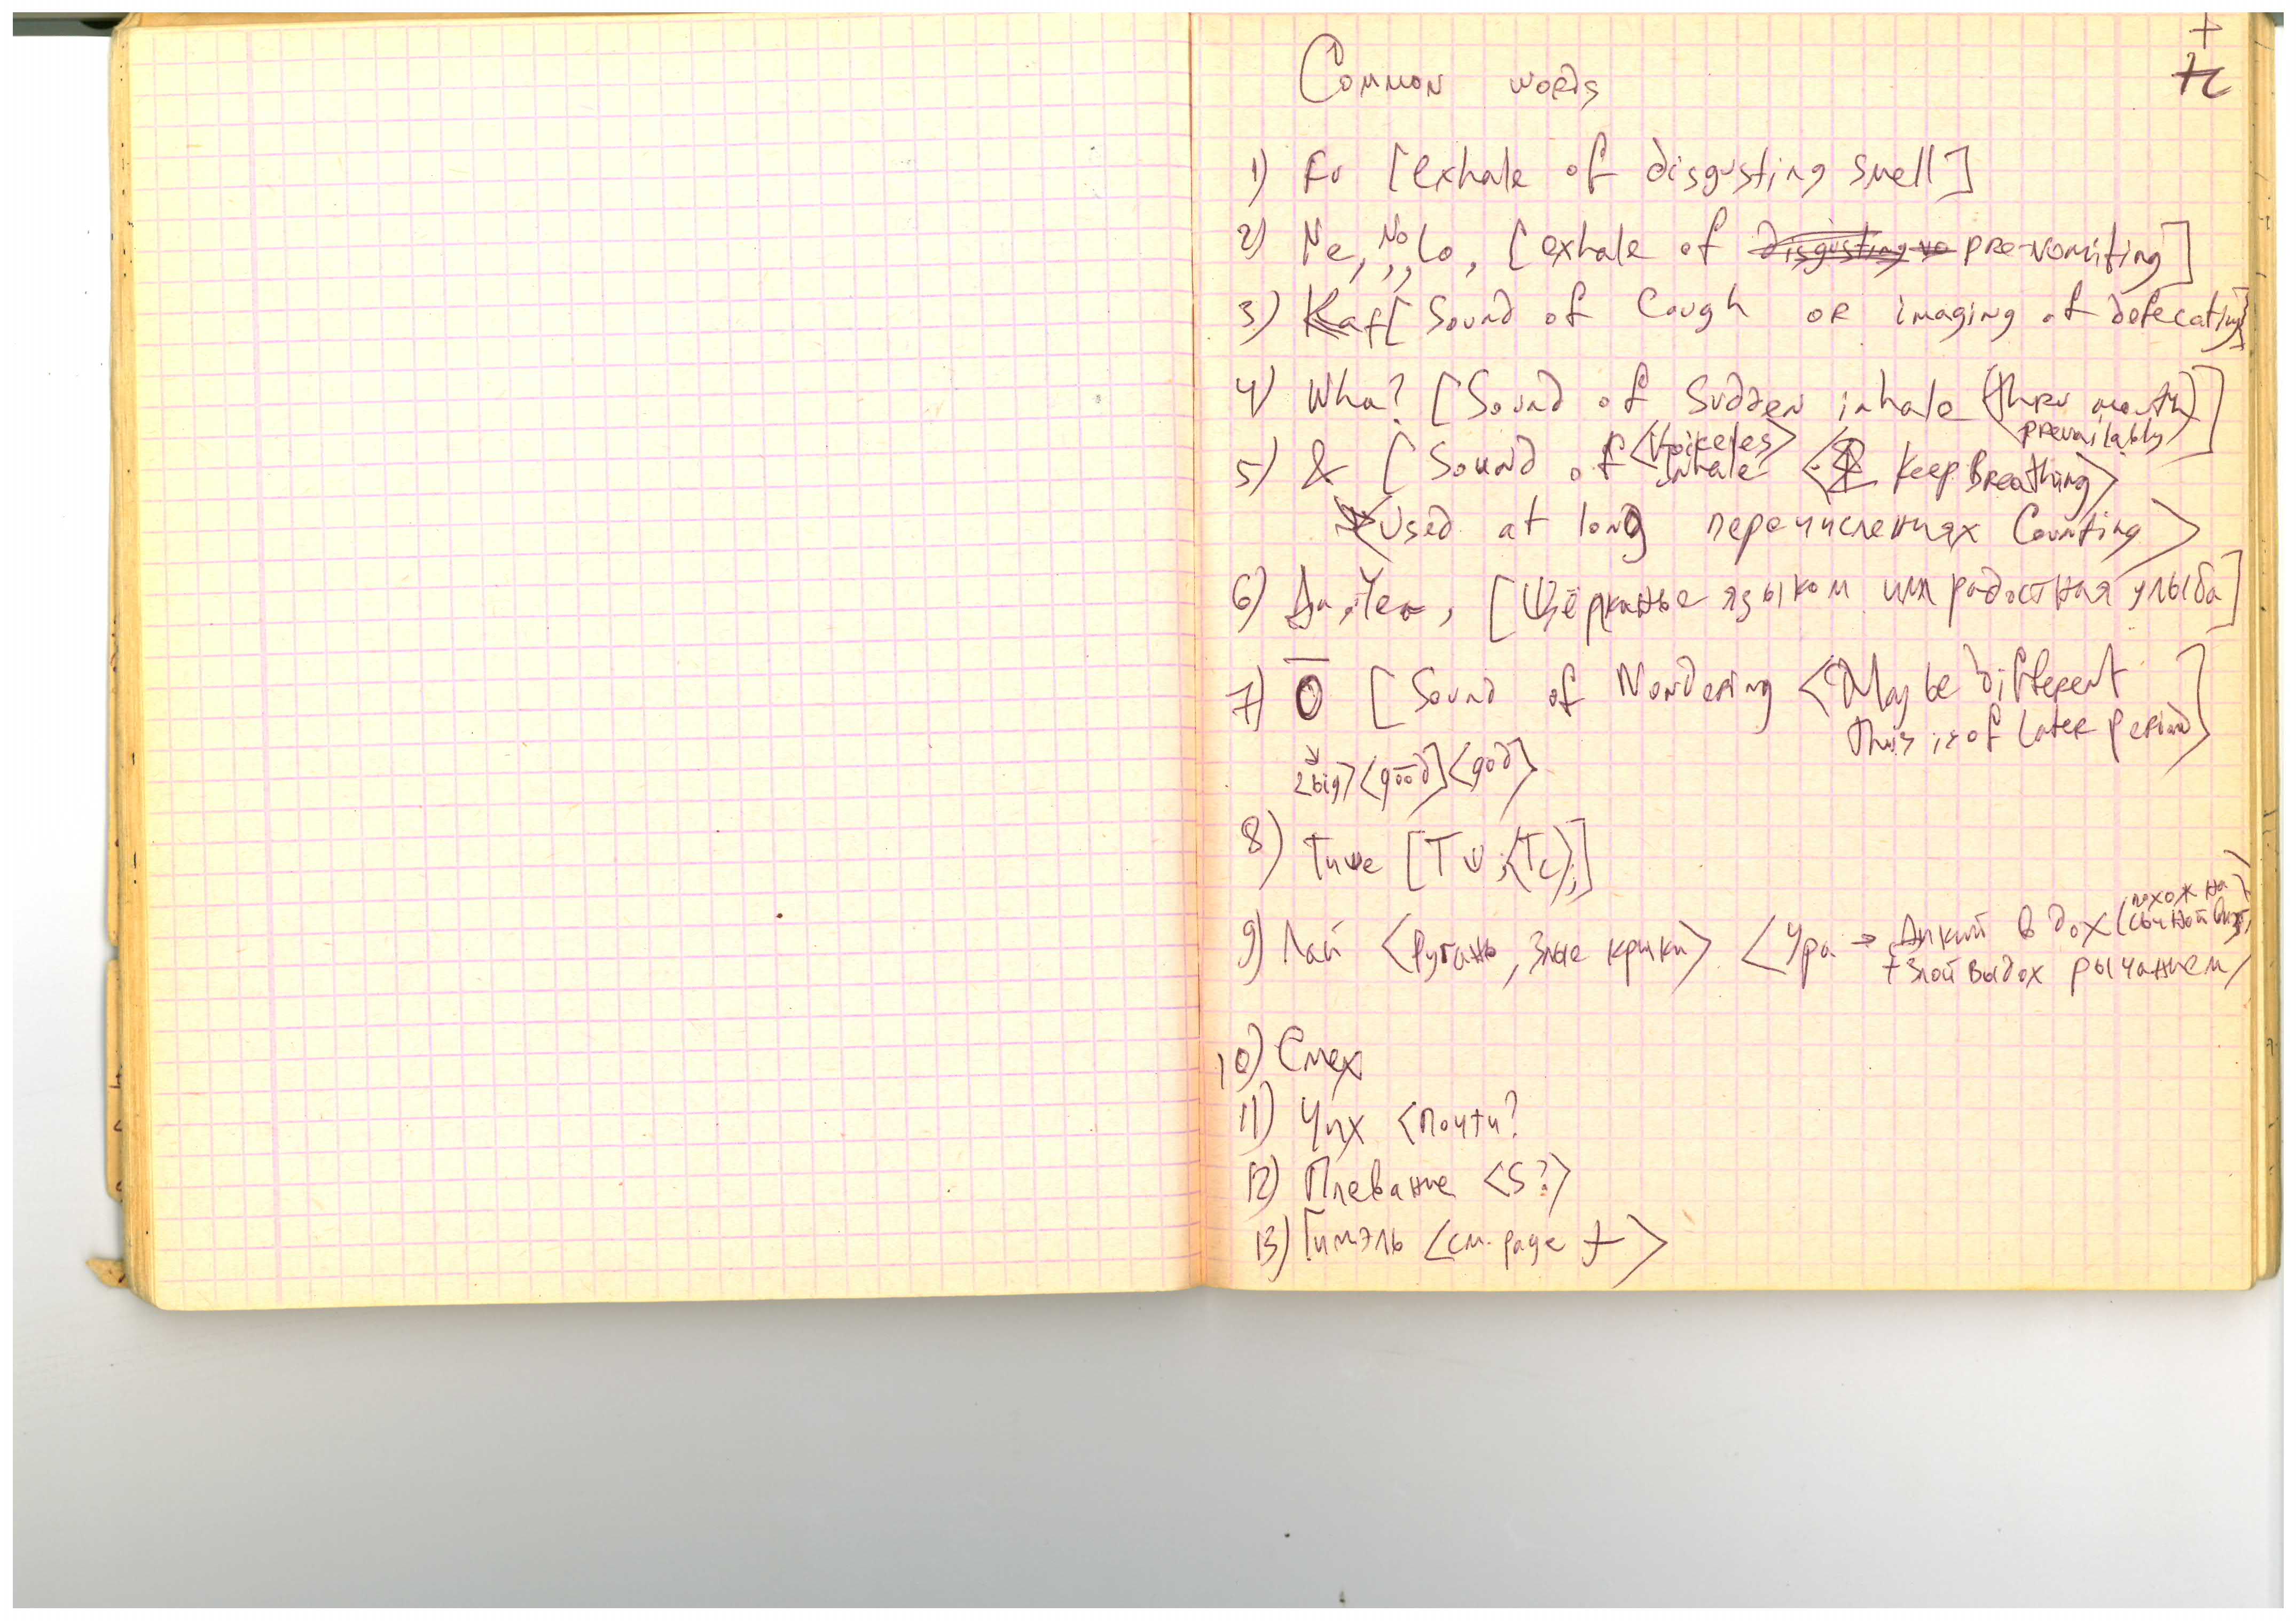 Common words
1) Fu [exhale of disgusting smell]
2) Ne, No, Lo, [exhale of disgusting vo pre-vomiting]
3) Kaf [Sound of Cough or imaging of defecating]
4) Wha? [Sound of Sudden inhale (thru mouth) prevailably]
5) & [Sound of <Voiceles> inhale < Keep Breathing>
<Used at long перечислениях Counting>
6) Да, Yea, [Щёрканье языком или радостная улыба]
7) O [Sound of Wondering <May be different
this is of later period>]
<big> <good] <god>
8) Тише [Тш, <Тс>,]
9) Лай <Ругань, Злые крики> <Ура → Дикий вдох (похож на
+ злой выдох рычанием>
10) Смех
11) Чих <почти?
12) Плевание <S?>
13) Гимэль <см. page >